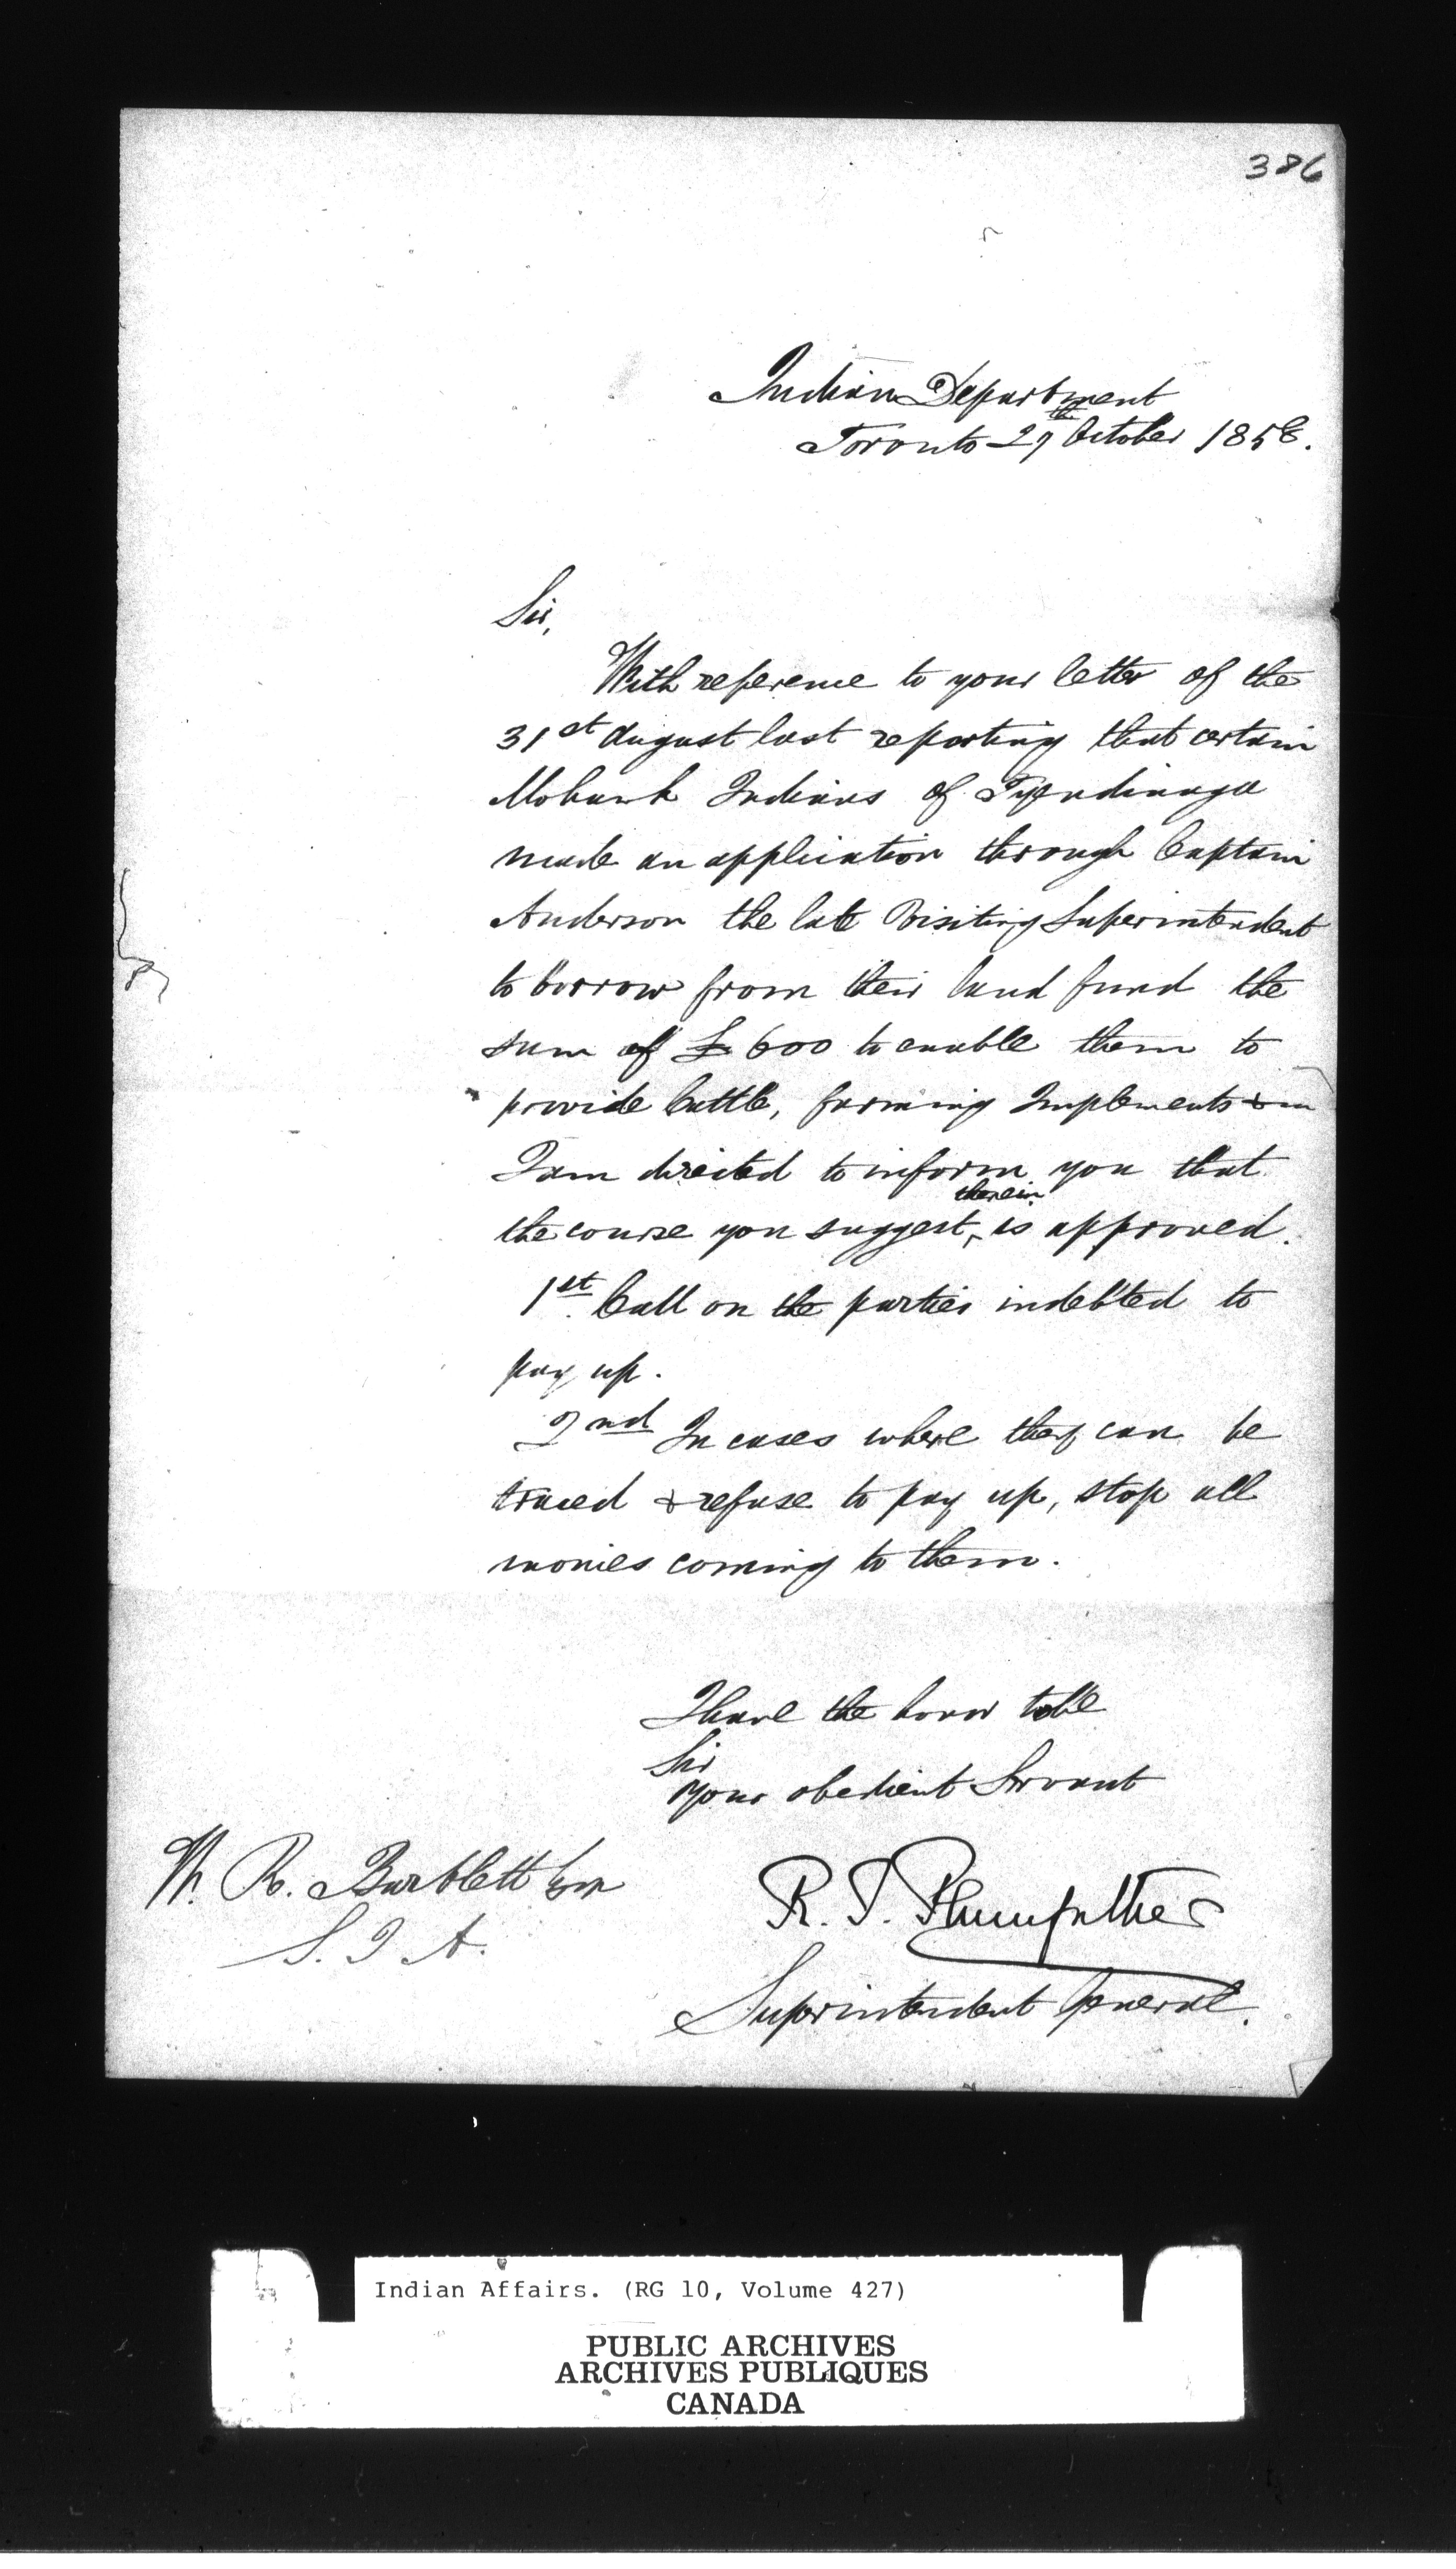 386
Indian Department
Toronto 27th October 1858.
Sir,
With reference to your letter of the
31st August last reporting that certain
Mohawk Indians of Tyendinaga
made an application through Captain
Anderson the late Visiting Superintendent
to borrow from their land fund the
sum of £600 to enable them to
provide Cattle, farming Implements &
I am directed to inform you that
the course you suggest, therein is approved.
1st. Call on the parties indebted to
pay up.
2nd In cases where they can be
traced & refuse to pay up, stop all
monies coming to them.
I have the honor to be
Sir
Your obedient Servant
W. R. Bartlett Esqr
S. I A.
R. T. Pennefather
Superintendent General.
Indian Affairs. (RG 10, Volume 427)
PUBLIC ARCHIVES
ARCHIVES PUBLIQUES
CANADA